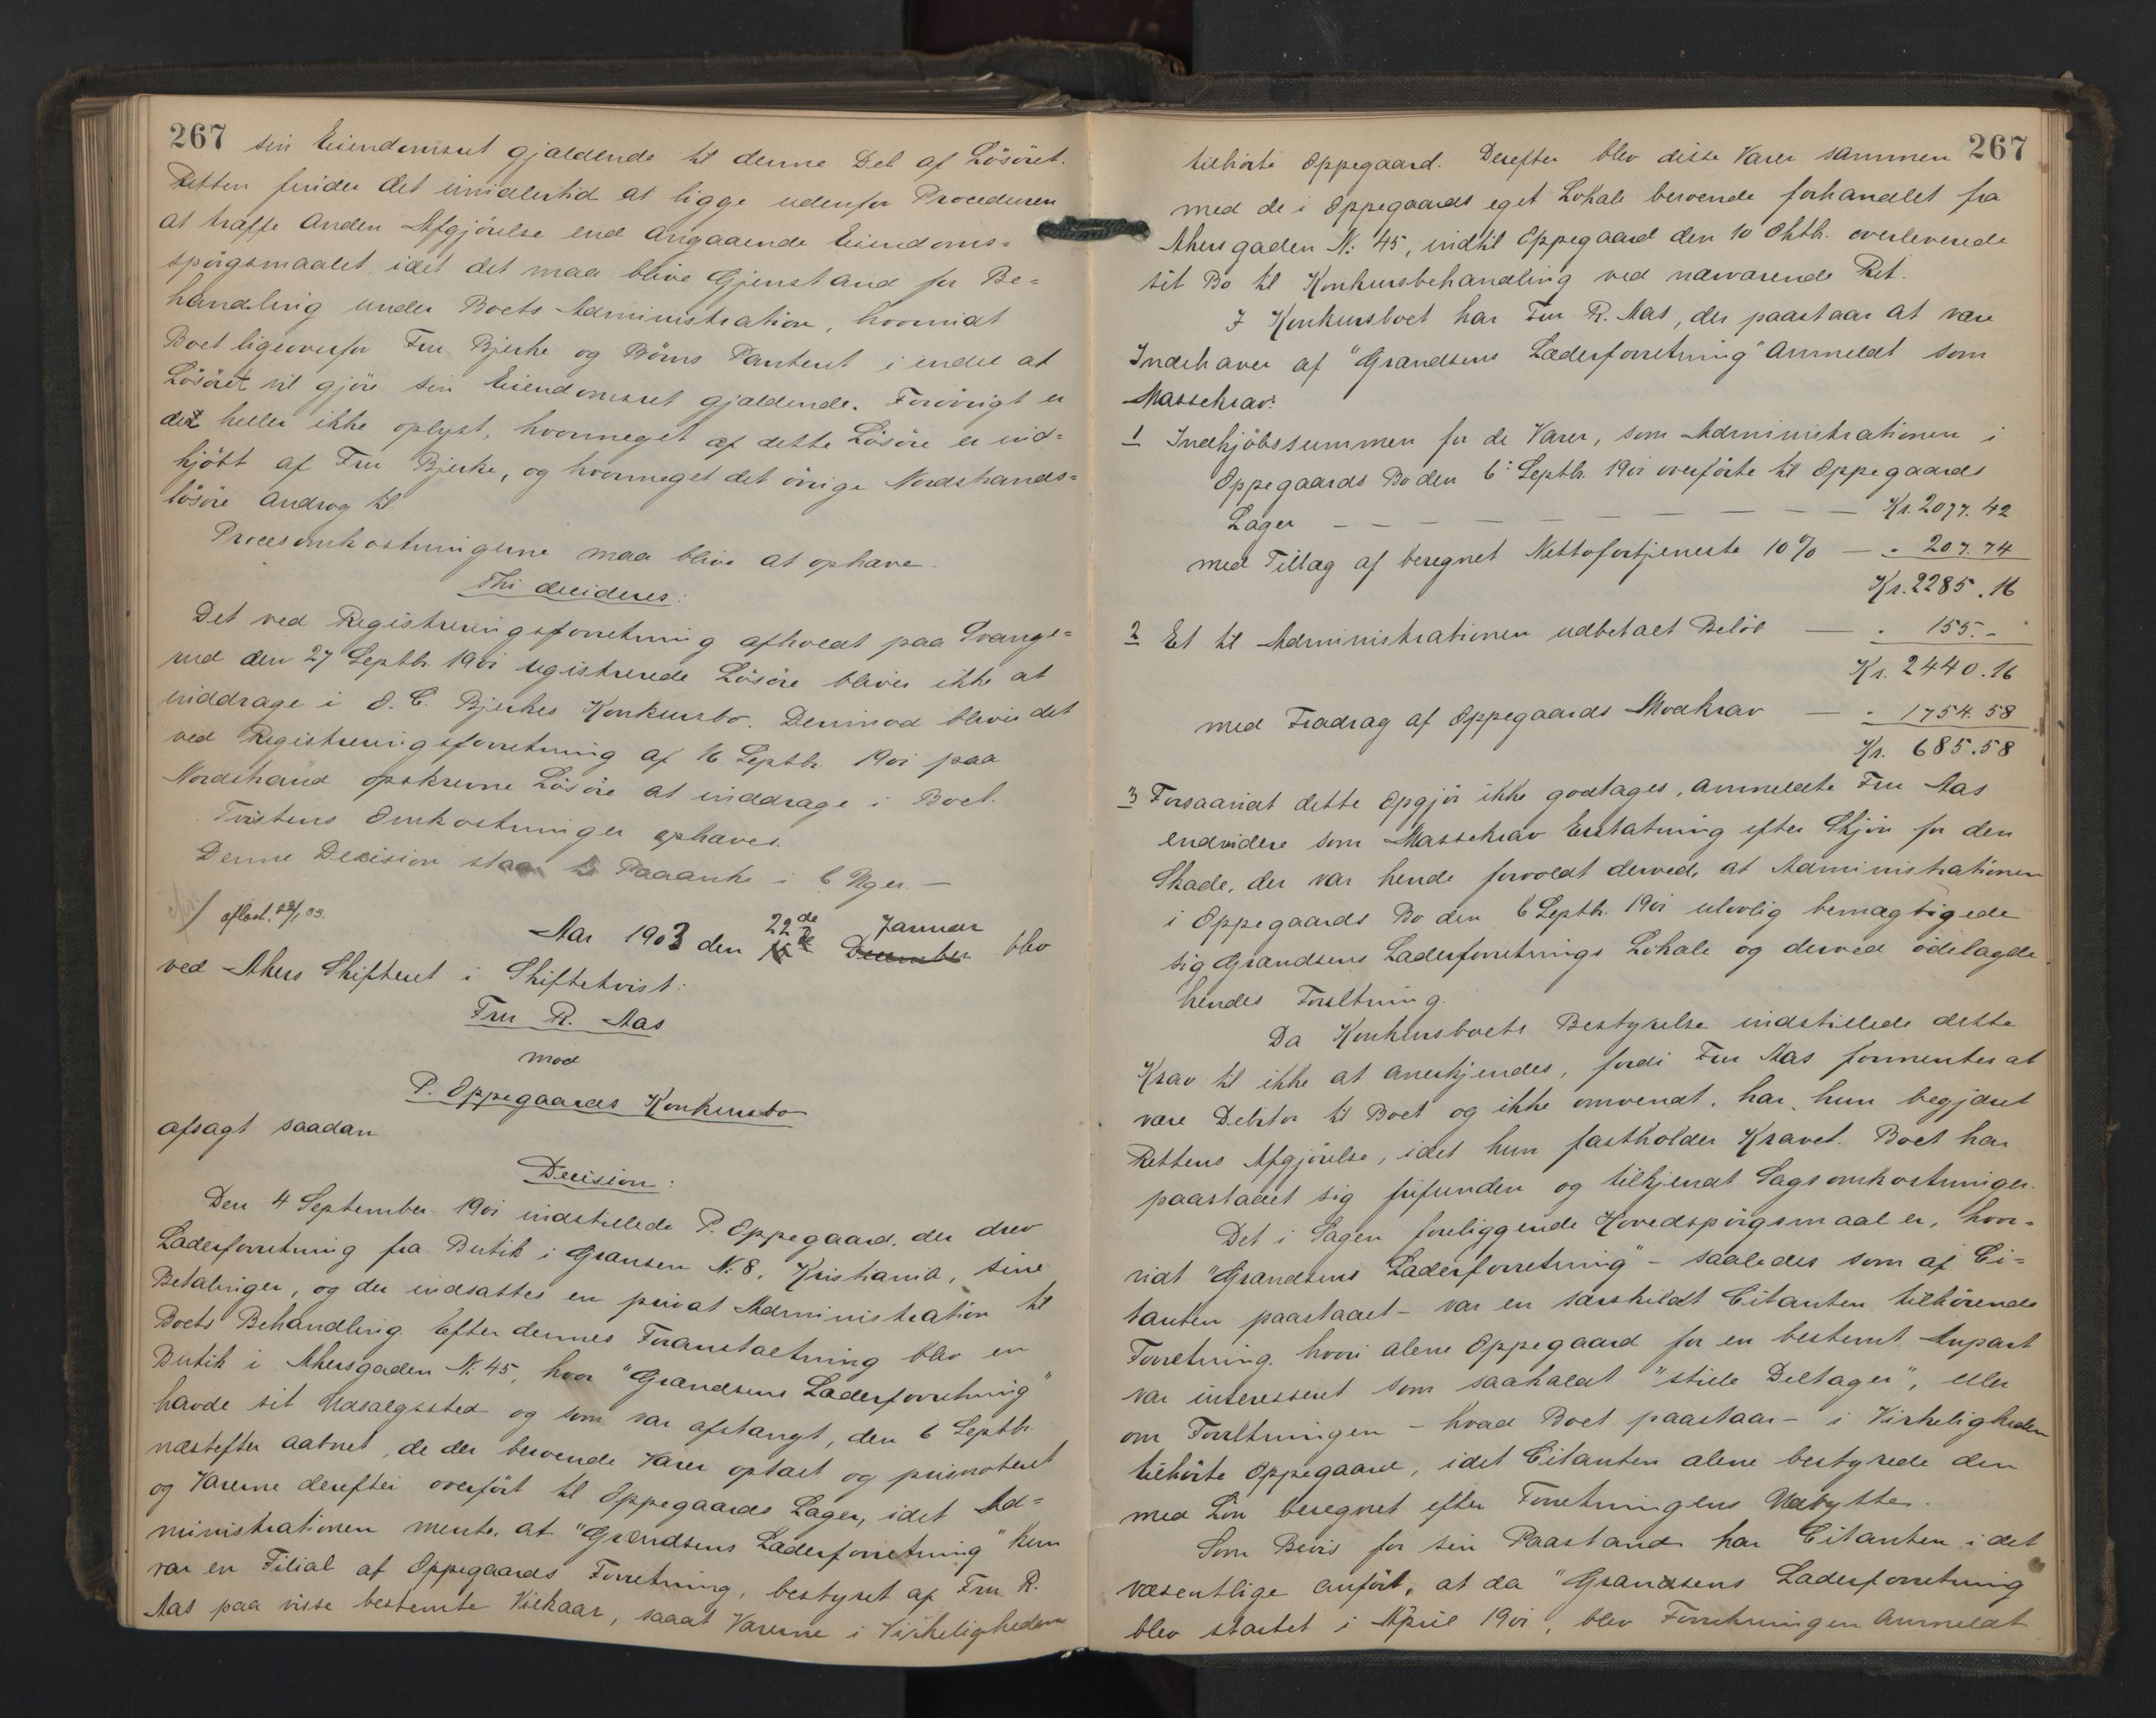 267 sin Eiendomsret gjældende til denne Del af Løsøret.
Retten finder det imidlertid at ligge udenfor Proceduren
at træffe anden Afgjørelse end angaaende Eiendoms=
spørgsmaalet, idet det maa blive Gjenstand for Be=
handling under Boets Administration, hvorvidt
Boet ligeoverfor Fru Bjerke og Børns Panteret i endel af
Løsøret vil gjøre sin Eiendomsret gjældende. Forøvrigt er
det heller ikke oplyst, hvormeget af dette Løsøre er ind=
kjøbt af Fru Bjerke, og hvormeget det øvrige Nordstrands=
løsøre androg til
Procesomkostningerne maa blive at ophæve.
Thi decideres:
Det ved Registreringsforretning afholdt paa Svange=
rud den 27 Septbr. 1901 registrerede Løsøre bliver ikke at
inddrage i O. C. Bjerkes Konkursbo. Derimod bliver det
ved Registreringsforretning af 16 Septbr. 1901 paa
Nordstrand opskrevne Løsøre at inddrage i Boet.
Tvistens Omkostninger ophæves.
Denne Decision staar til Paaanke i 6 Uger. —
/ aflæst. 22/1 03.
22de Januar
Aar 1903 den December blev
ved Akers Skifteret i Skiftetvist:
Fru R. Aas
mod
P. Oppegaards Konkursbo
afsagt saadan
Decision:
Den 4 September 1901 indstillede P. Oppegaard, der drev
Læderforretning fra Butik i Grænsen N: 8, Kristiania, sine
Betalinger, og der indsattes en privat Administration til
Boets Behandling. Efter dennes Foranstaltning blev en
Butik i Akersgaden N: 45, hvor "Grændsens Læderforretning"
havde sit Udsalgssted og som var afstængt, den 6 Septbr.
næstefter aabnet, de der beroende Varer optalt og prisnoteret
og Varerne derefter overført til Oppegaards Lager, idet Ad=
ministrationen mente, at "Grændsens Læderforretning" kun
var en Filial af Oppegaards Forretning, bestyret af Fru R.
Aas paa visse bestemte Vilkaar, saaat Varerne i Virkeligheden
267
tilhørte Oppegaard. Derefter blev disse Varer sammen
med de i Oppegaards eget Lokale beroende forhandlet fra
Akersgaden N: 45, indtil Oppegaard den 10 Oktbr. overleverede
sit Bo til Konkursbehandling ved nærværende Ret.
I Konkursboet har Fru R. Aas, der paastaar at være
Indehaver af "Grændsens Læderforretning" anmeldt som
Massekrav:
1 Indkjøbssummen for de Varer, som Administrationen i
Oppegaards Bo den 6: Septbr. 1901 overførte til Oppegaards
Lager — — — — — — — — — Kr. 2077. 42
med Tillæg af beregnet Nettofortjeneste 10% — - 207. 74
Kr. 2285. 16
2 Et til Administrationen udbetalt Beløb — - 155. -
Kr. 2440. 16
med Fradrag af Oppegaards Modkrav — - 1754. 58
Kr. 685. 58
3 Forsaavidt dette Opgjør ikke godtages, anmeldte Fru Aas
endvidere som Massekrav Erstatning efter Skjøn for den
Skade, der var hende forvoldt derved, at Administrationen
i Oppegaards Bo den 6 Septbr. 1901 ulovlig bemægtigede
sig Grændsens Læderforretnings Lokale og derved ødelagde
hendes Forretning.
Da Konkursboets Bestyrelse indstillede dette
Krav til ikke at anerkjendes, fordi Fru Aas formentes at
være Debitor til Boet og ikke omvendt, har hun begjæret
Rettens Afgjørelse, idet hun fastholder Kravet. Boet har
paastaaet sig frifunden og tilkjendt Sagsomkostninger.
Det i Sagen foreliggende Hovedspørgsmaal er, hvor-
vidt "Grændsens Læderforretning" - saaledes som af Ci=
tanten paastaaet - var en særskildt Citanten tilhørende
Forretning, hvori alene Oppegaard for en bestemt Anpart
var interesseret som saakaldt "stille Deltager", eller
om Forretningen - hvad Boet paastaar - i Virkeligheden
tilhørte Oppegaard, idet Citanten alene bestyrede den
med Løn beregnet efter Forretningens Udbytte.
Som Bevis for sin Paastand har Citanten i det
væsentlige anført, at da "Grændsens Læderforretning
blev startet i April 1901, blev Forretningen anmeldt